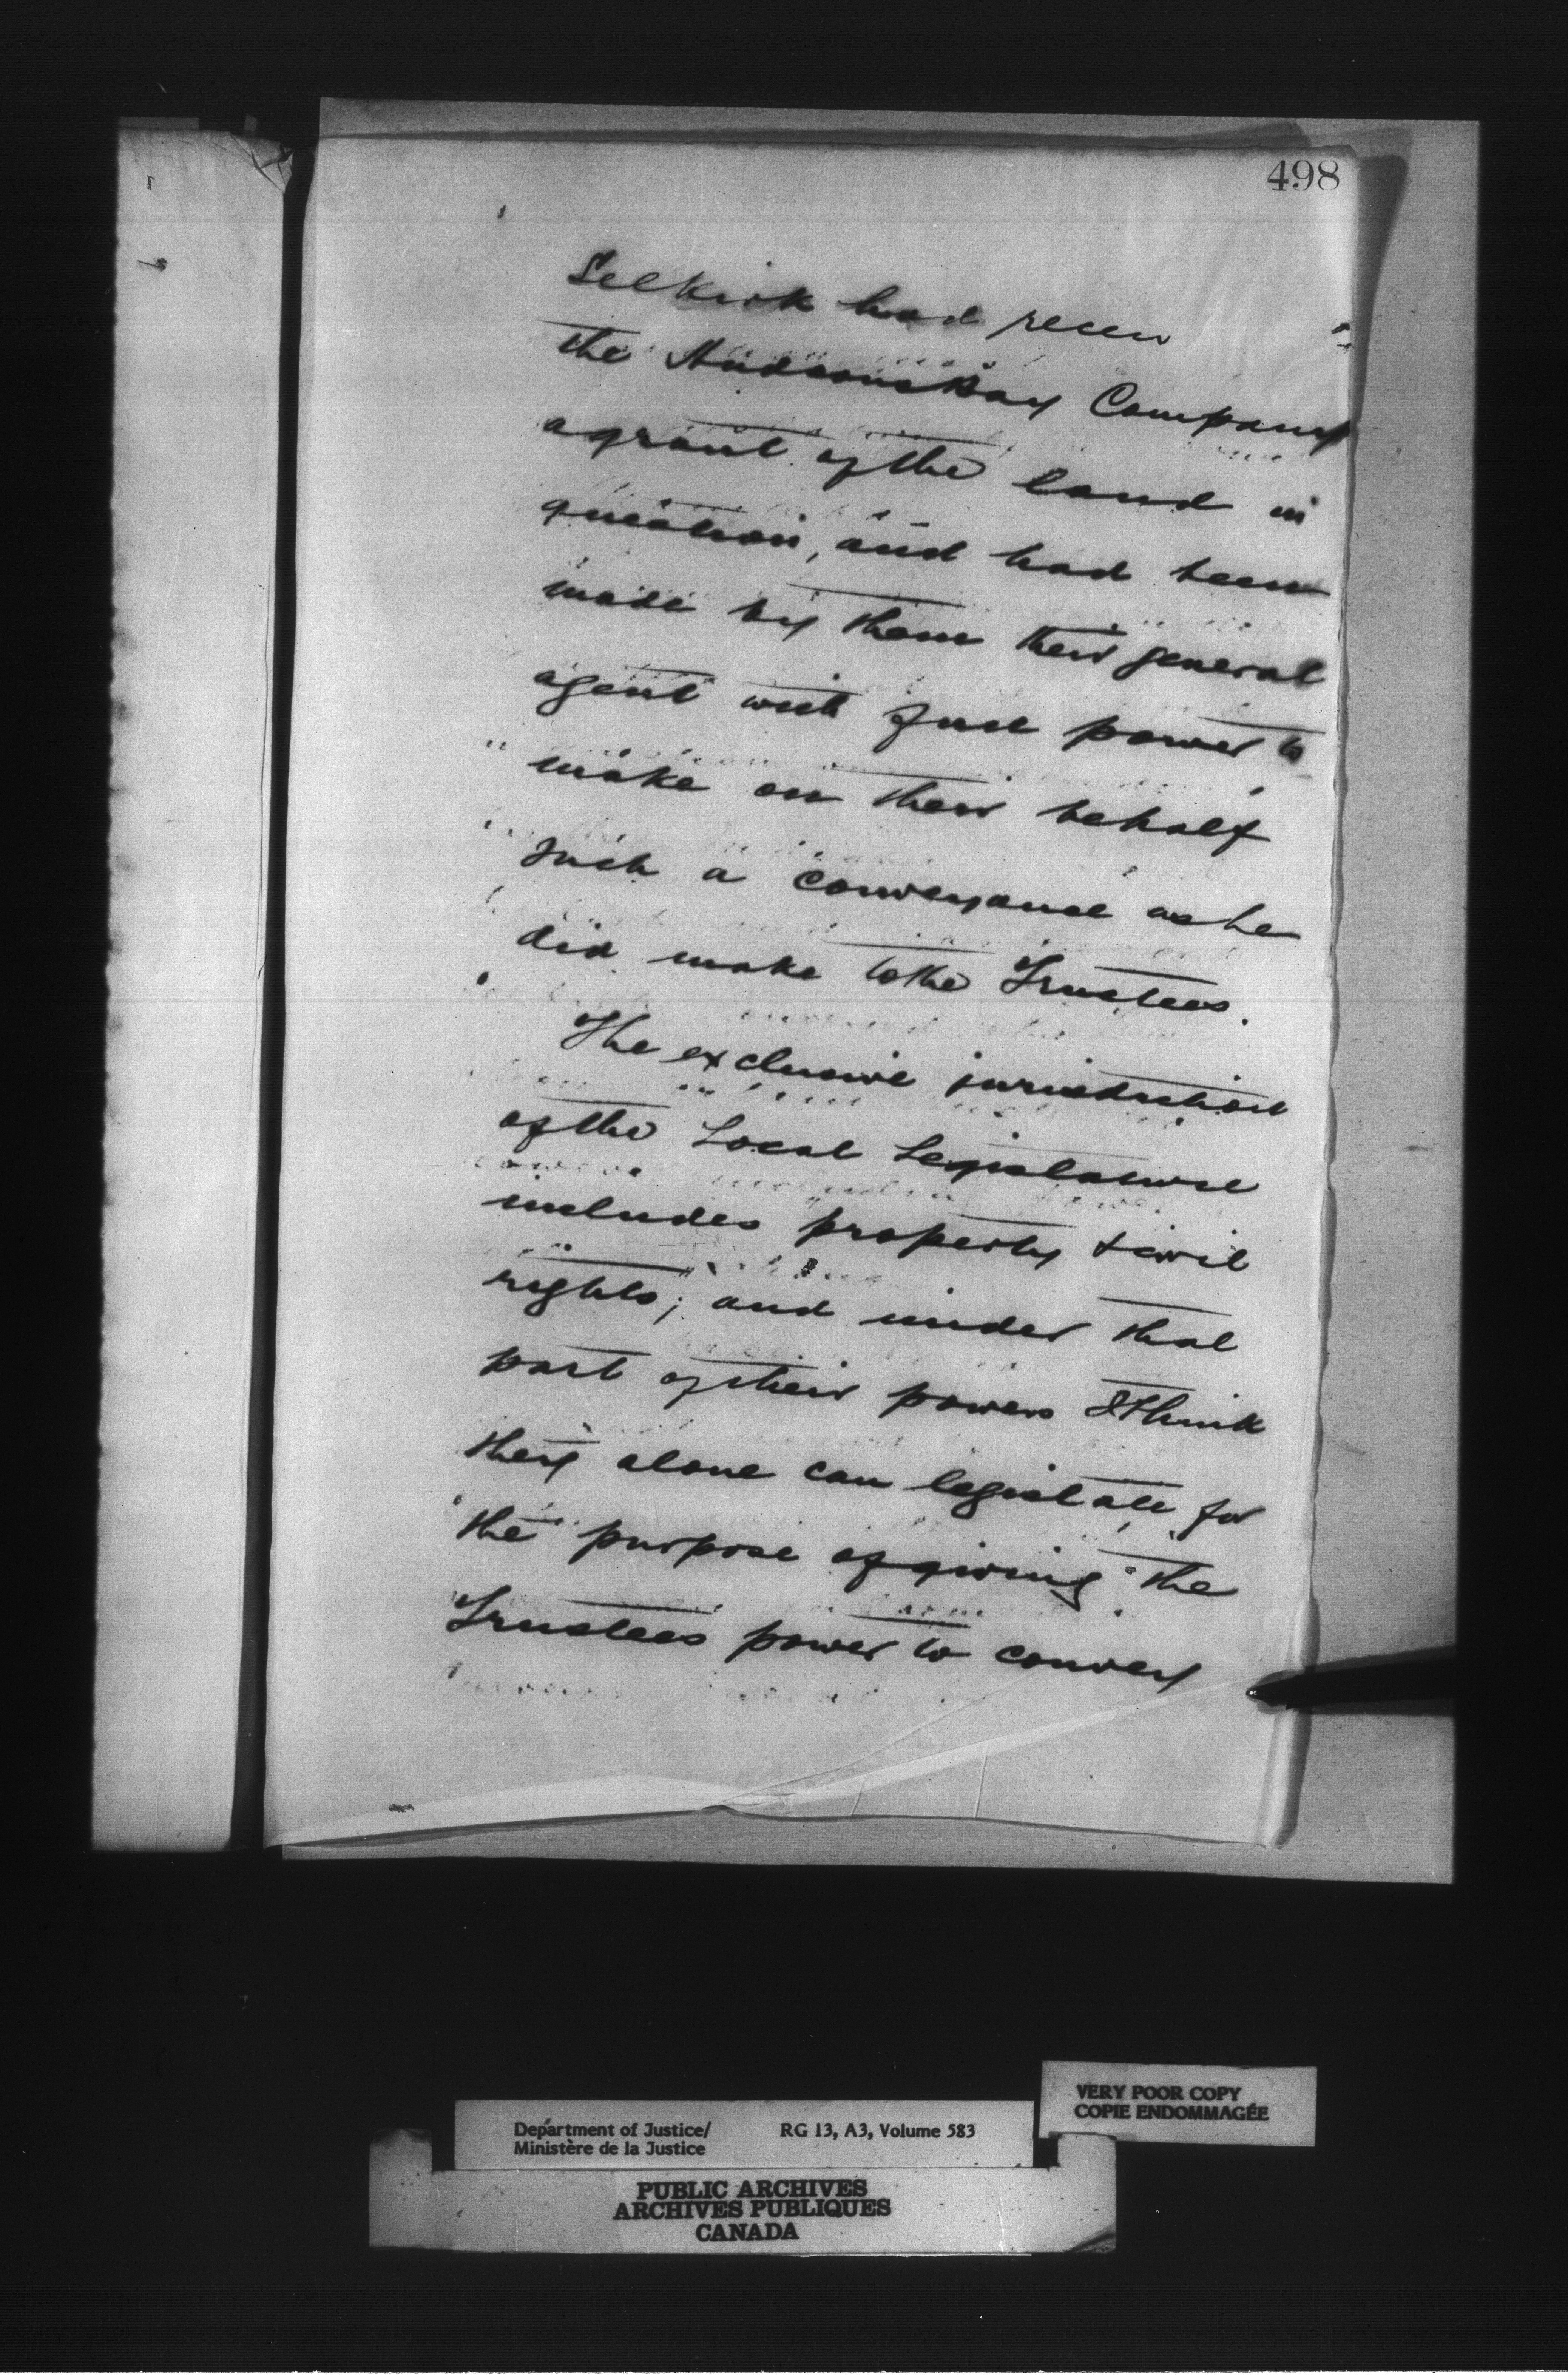 498
Selkirk had recei
the Hudsons Bay Company
a grant of the land in
question, and had been
made by them their general
agent with full power to
make on their behalf
such a conveyance as he
did make to the Trustees.
The exclusive jurisdiction
of the Local Legislature
includes property & civil
rights; and under that
part of their powers I think
they alone can legislate for
the purpose of giving the
Trustees power to convey
VERY POOR COPY
COPIE ENDOMMAGÉE
Department of Justice/ RG 13, A3, Volume 583
Ministère de la Justice
PUBLIC ARCHIVES
ARCHIVES PUBLIQUES
CANADA